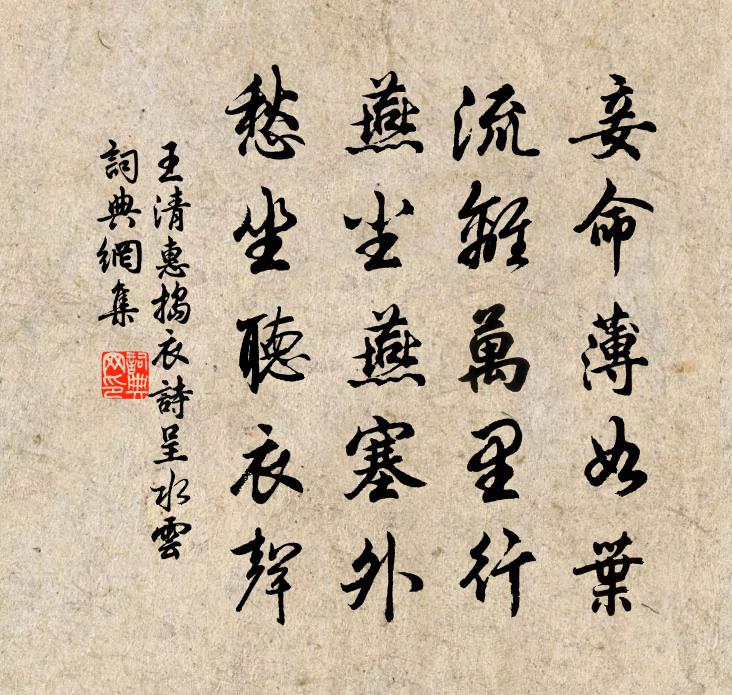 妾命薄如葉
流離萬里行
燕尘燕塞外
愁坐聽衣聲
王清惠搗衣詩呈水雲
詞典網集
詞典
网印